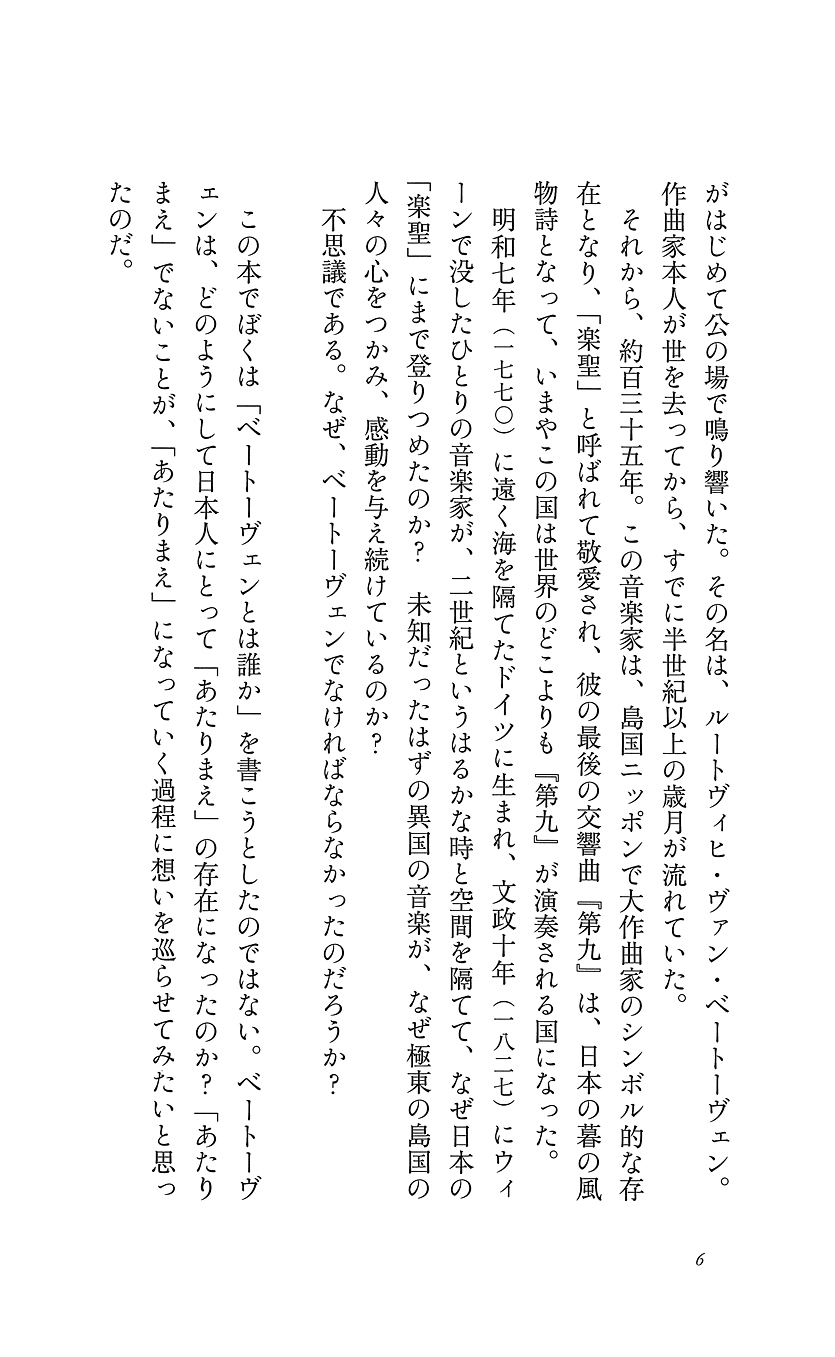 がはじめて公の場で鳴り響いた。その名は、ルートヴィヒ・ヴァン・ベートーヴェン。
作曲家本人が世を去ってから、すでに半世紀以上の歳月が流れていた。
それから、約百三十五年。この音楽家は、島国ニッポンで大作曲家のシンボル的な存
在となり、「楽聖」と呼ばれて敬愛され、彼の最後の交響曲『第九』は、日本の暮の風
物詩となって、いまやこの国は世界のどこよりも『第九』が演奏される国になった。
明和七年（一七七〇）に遠く海を隔てたドイツに生まれ、文政十年（一八二七）にウィ
ーンで没したひとりの音楽家が、二世紀というはるかな時と空間を隔てて、なぜ日本の
「楽聖」にまで登りつめたのか？　未知だったはずの異国の音楽が、なぜ極東の島国の
人々の心をつかみ、感動を与え続けているのか？
不思議である。なぜ、ベートーヴェンでなければならなかったのだろうか？
この本でぼくは「ベートーヴェンとは誰か」を書こうとしたのではない。ベートーヴ
ェンは、どのようにして日本人にとって「あたりまえ」の存在になったのか？「あたり
まえ」でないことが、「あたりまえ」になっていく過程に想いを巡らせてみたいと思っ
たのだ。
6